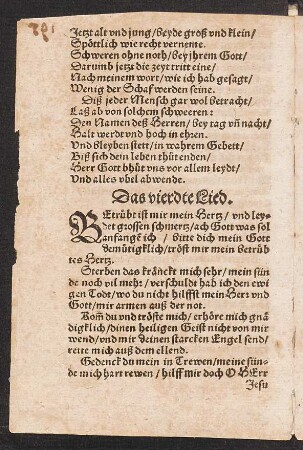 Jetzt alt vnd jung/ beyde groß vnd klein/
Spötlich wie recht verneme.
Schweren ohne noth/ bey jhrem Gott/
Darumb jetzt die zeyt tritt eine/
Nach meinem wort/ wie ich hab gesagt/
Wenig der Schaf werden seine.
Diß jeder Mensch gar wol betracht/
Laß ab von solchem schweeren:
Den Namen deß HErren/ bey tag vñ nacht/
Halt werdt vnd hoch in ehren.
Vnd bleyben stett/ in wahrem Gebett/
Biß sich dein leben thüt enden/
Herr Gott bhüt vns vor allem leydt/
Vnd alles vbel abwende.
Das vierdte Lied.
BEtrübt ist mir mein Hertz/ vnd ley-
det grossen schmertz/ ach Gott was sol
anfange ich/ bitte dich mein Gott
demütigklich/ tröst mir mein betrüb
tes Hertz.
Sterben das kränckt mich sehr/ mein sün
de noch vil mehr/ verschuldt hab ich den ewi
gen Todt/ wo du nicht hilffst mein Herr vnd
Gott/ mir armen auß der not.
Kom̃ du vnd tröste mich/ erhöre mich gnä
digklich/ dinen heiligen Geist nicht von mir
wend/ vnd mir deinen starcken Engel send/
rette mich auß dem ellend.
Gedenck du mein in Trewen/ meine sün-
de mich hart rewen/ hilff mir doch O HErr
Jesu